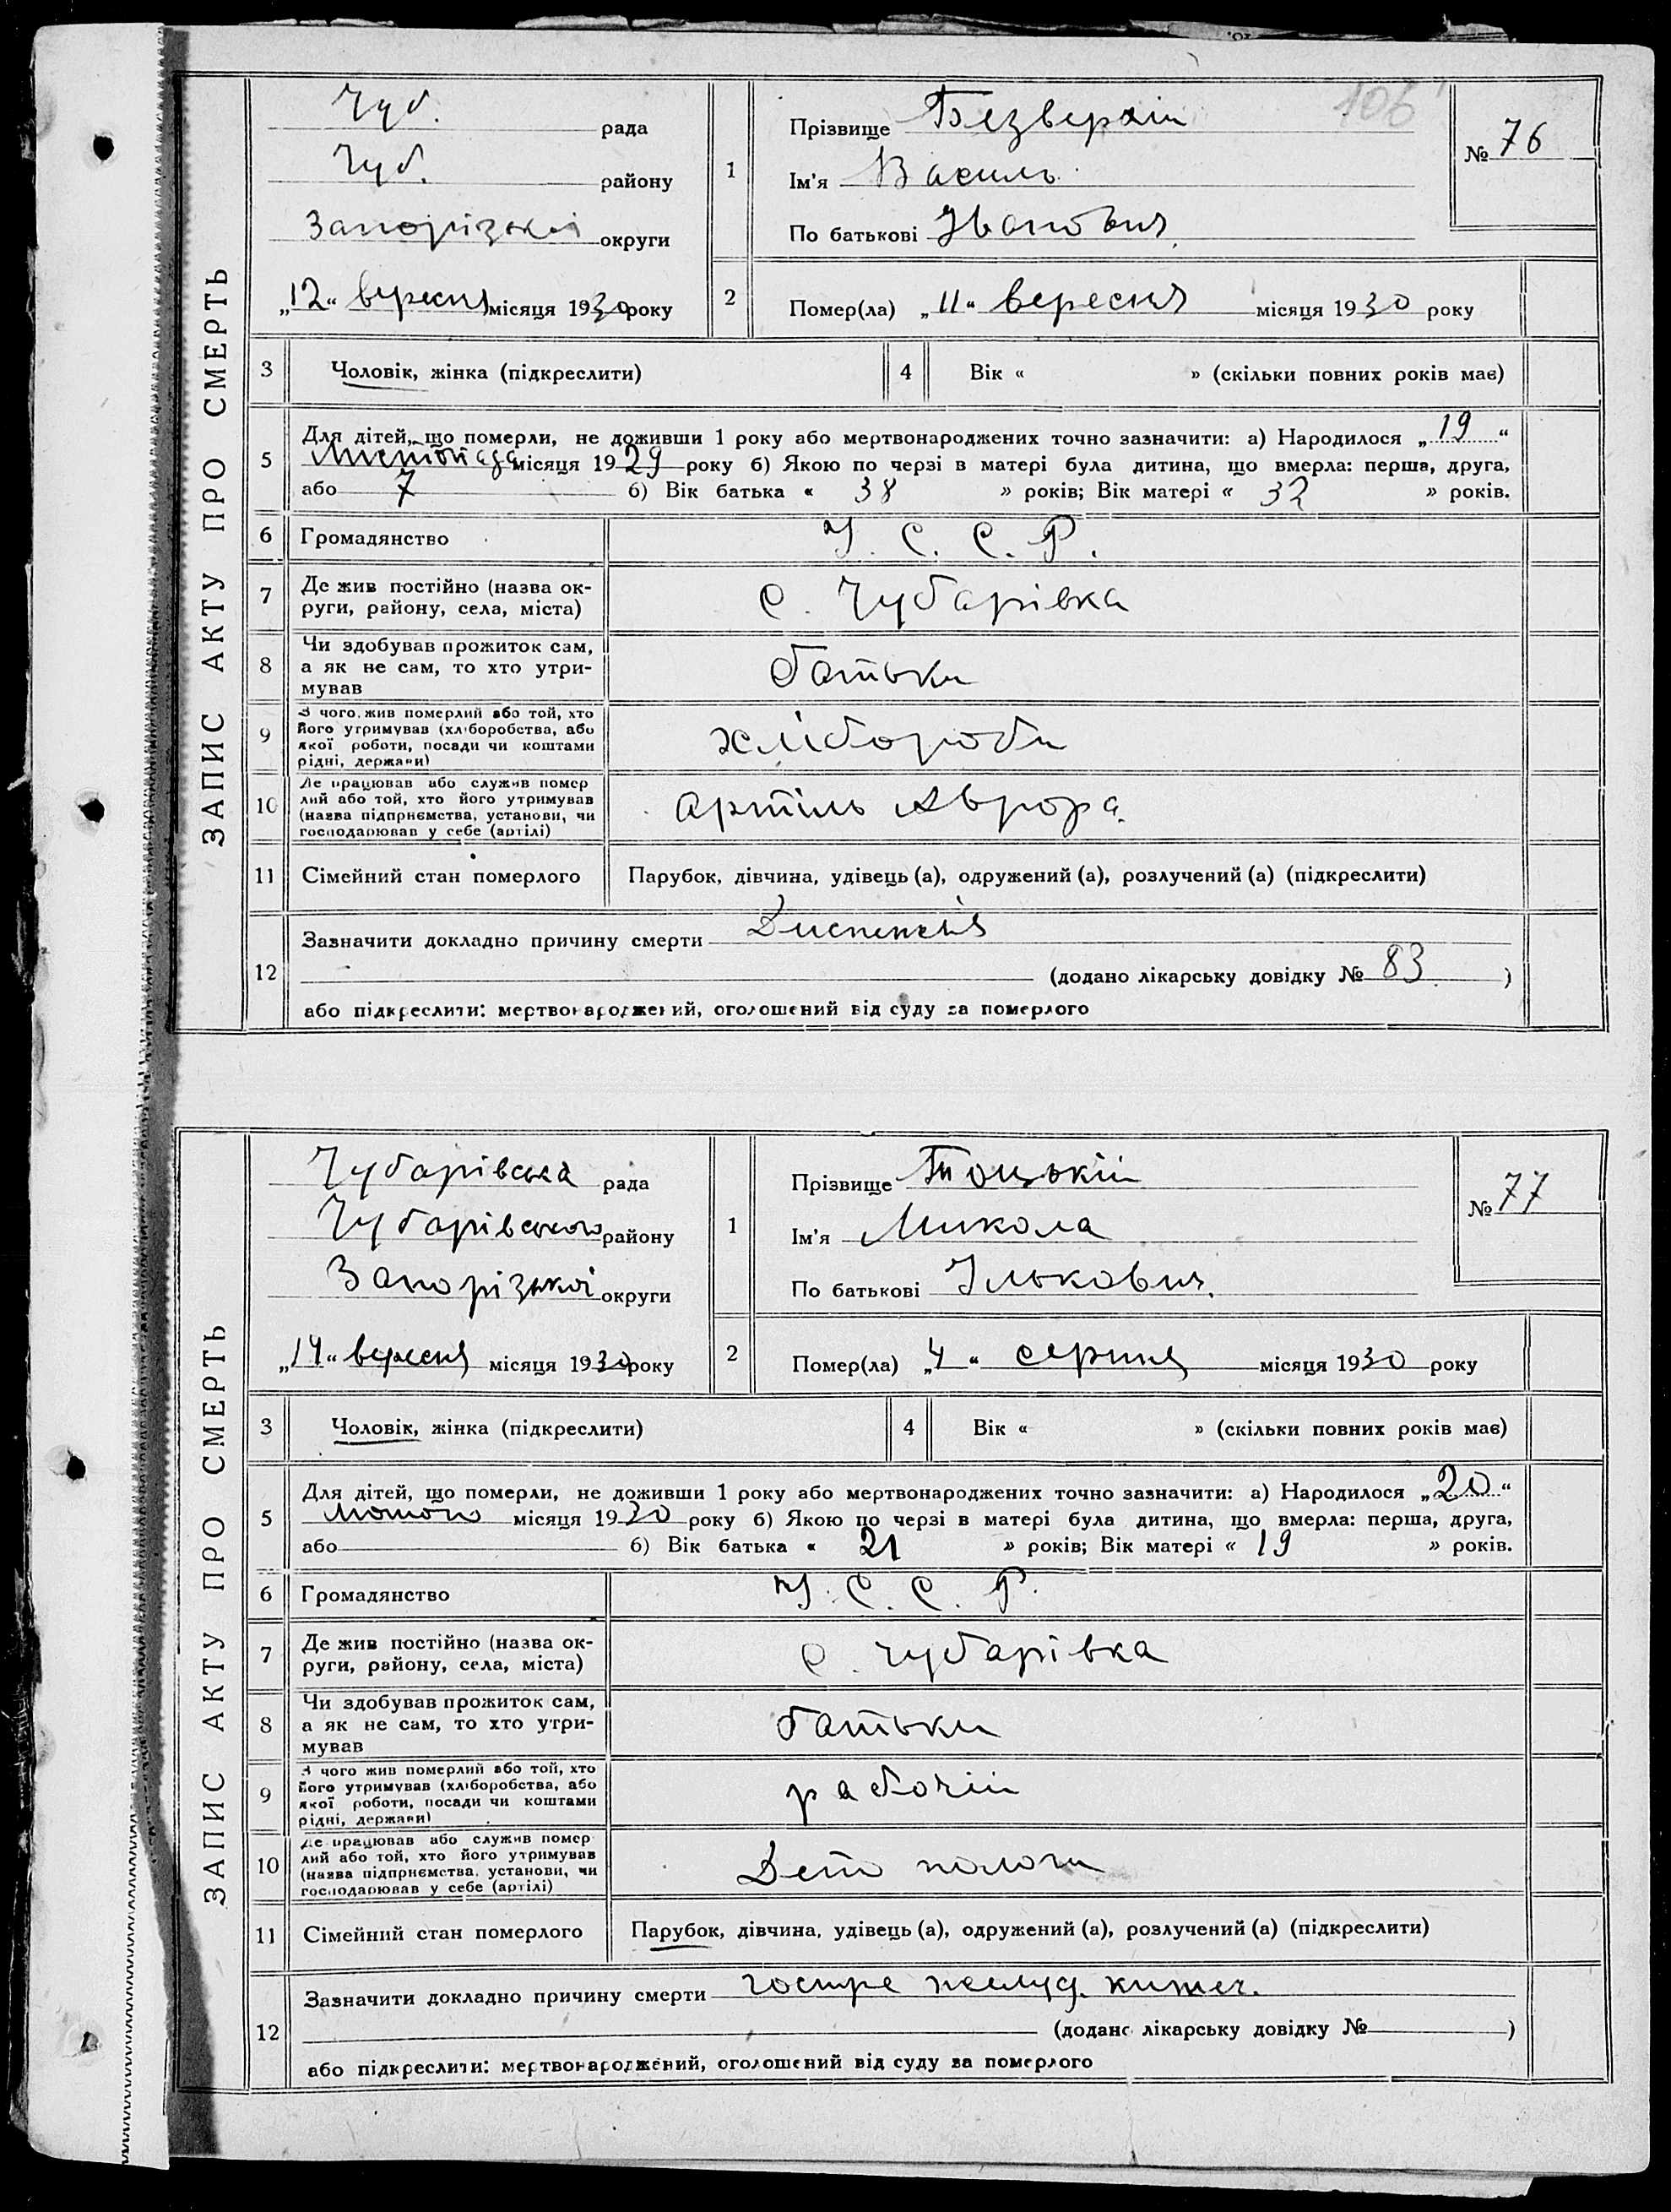 106
ЗАПИС АКТУ ПРО СМЕРТЬ
Чуб. рада
Чуб. району
Запорізької округи
„12“ вересня місяця 1930 року
1
Прізвище Безверхій
Ім'я Василь
По батькові Іванович
№ 76
2
Помер(ла) „11“ вересня місяця 1930 року
3 Чоловік, жінка (підкреслити)
4 Вік « » (скільки повних років має)
5 Для дітей, що померли, не доживши 1 року або мертвонароджених точно зазначити: а) Народилося „19“
Листопада місяця 1929 року б) Якою по черзі в матері була дитина, що вмерла: перша, друга,
або 7 б) Вік батька « 38 » років; Вік матері « 32 » років.
6 Громадянство У. С. С. Р.
7 Де жив постійно (назва ок-
руги, району, села, міста) с. Чубарівка
8 Чи здобував прожиток сам,
а як не сам, то хто утри-
мував батьки
9 З чого жив померлий або той, хто
його утримував (хліборобства, або
якої роботи, посади чи коштами
рідні, держави) хлібороби
10 Де працював або служив помер
лий або той, хто його утримував
(назва підприємства, установи, чи
господарював у себе (артілі) артіль Аврора
11 Сімейний стан померлого Парубок, дівчина, удівець (а), одружений (а), розлучений (а) (підкреслити)
12 Зазначити докладно причину смерти Диспепсія
(додано лікарську довідку № 83 )
або підкреслити: мертвонароджений, оголошений від суду за померлого
ЗАПИС АКТУ ПРО СМЕРТЬ
Чубарівська рада
Чубарівського району
Запорізької округи
„14“ вересня місяця 1930 року
1
Прізвище Тоцький
Ім'я Микола
По батькові Ількович.
№ 77
2
Помер(ла) „4“ серпня місяця 1930 року
3 Чоловік, жінка (підкреслити)
4 Вік « » (скільки повних років має)
5 Для дітей, що померли, не доживши 1 року або мертвонароджених точно зазначити: а) Народилося „20“
Лютого місяця 1930 року б) Якою по черзі в матері була дитина, що вмерла: перша, друга,
або б) Вік батька « 21 » років; Вік матері « 19 » років.
6 Громадянство У. С. С. Р.
7 Де жив постійно (назва ок-
руги, району, села, міста) с. Чубарівка
8 Чи здобував прожиток сам,
а як не сам, то хто утри-
мував батьки
9 З чого жив померлий або той, хто
його утримував (хліборобства, або
якої роботи, посади чи коштами
рідні, держави) рабочій
10 Де працював або служив помер
лий або той, хто його утримував
(назва підприємства, установи, чи
господарював у себе (артілі) Депо пологи
11 Сімейний стан померлого Парубок, дівчина, удівець (а), одружений (а), розлучений (а) (підкреслити)
12 Зазначити докладно причину смерти гостре желуд. кишеч.
(додано лікарську довідку № )
або підкреслити: мертвонароджений, оголошений від суду за померлого